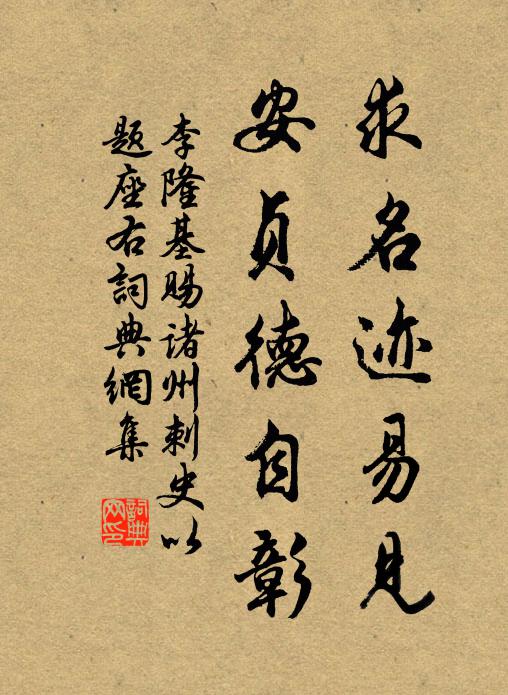 求名迹易见
安贞德自彰
李隆基赐诸州刺史以
题座右詞典網集
詞典
网印